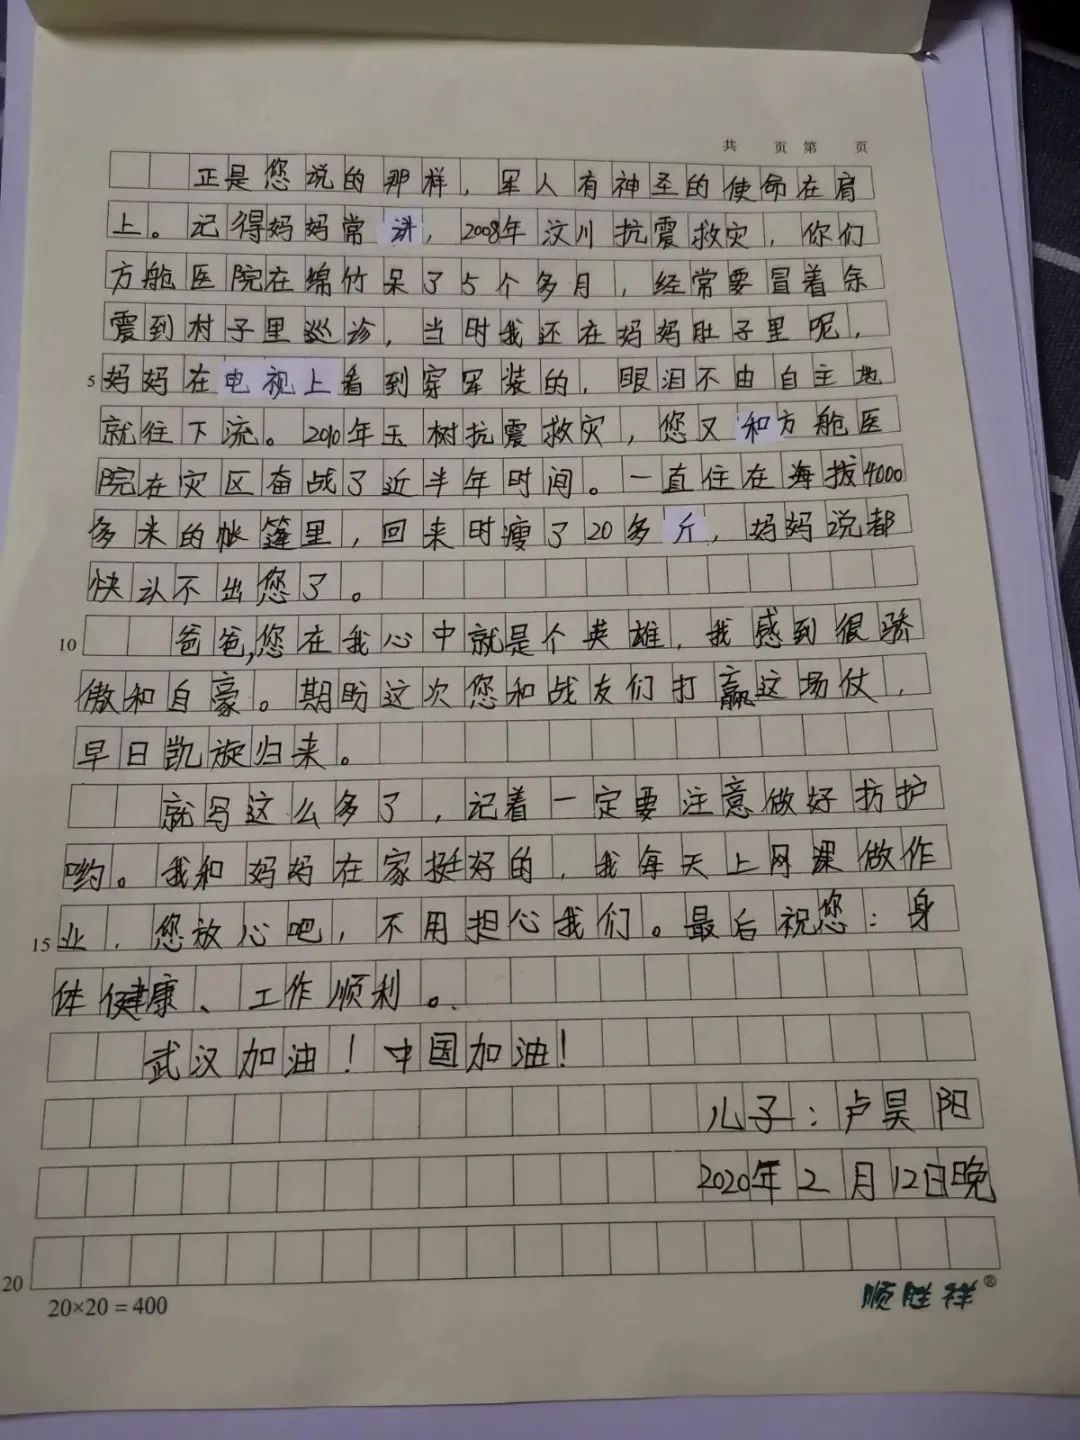 共 页 第 页
正是您说的那样，军人有神圣的使命在肩
上。记得妈妈常讲，2008年汶川抗震救灾，你们
方舱医院在绵竹呆了5个多月，经常要冒着余
震到村子里巡诊，当时我还在妈妈肚子里呢，
5 妈妈在电视上看到穿军装的，眼泪不由自主地
就往下流。2010年玉树抗震救灾，您又和方舱医
院在灾区奋战了近半年时间。一直住在海拔4000
多米的帐篷里，回来时瘦了20多斤，妈妈说都
快认不出您了。
10 爸爸,您在我心中就是个英雄，我感到很骄
傲和自豪。期盼这次您和战友们打赢这场仗，
早日凯旋归来。
就写这么多了，记着一定要注意做好防护
哟。我和妈妈在家挺好的，我每天上网课做作
15 业，您放心吧，不用担心我们。最后祝您：身
体健康、工作顺利。
武汉加油！中国加油！
儿子：卢昊阳
2020年2月12日晚
20
20×20=400 顺胜祥®